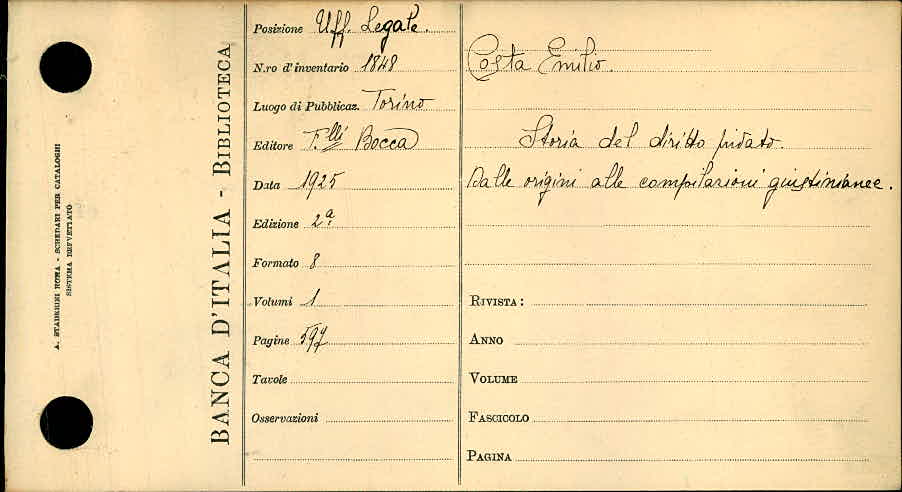 A. STADERINI ROMA - SCHEDARI PER CATALOGHI
SISTEMA BREVETTATO
BANCA D'ITALIA - BIBLIOTECA
Posizione Uff. Legale.
N.ro d'inventario 1848
Luogo di Pubblicaz. Torino
Editore F.lli Bocca
Data 1925
Edizione 2ª
Formato 8
Volumi 1
Pagine 597
Tavole
Osservazioni
Costa Emilio.
Storia del diritto privato.
Dalle origini alle compilazioni giustinianee.
RIVISTA:
ANNO
VOLUME
FASCICOLO
PAGINA